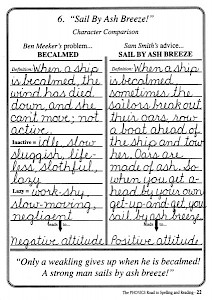 6. "Sail By Ash Breeze!"
Character Comparison
Ben Meeker's problem...
BECALMED
Definition: When a ship
is becalmed, the
wind has died
down, and she
can't move; not
active.
Inactive = idle, slow
sluggish, life-
less, slothful,
lazy
Lazy = work-shy,
slow-moving,
negligent
Negative attitude
Sam Smith's advice...
SAIL BY ASH BREEZE
Definition: When a ship
is becalmed,
sometimes the
sailors break out
their oars, row
a boat ahead of
the ship and tow
her. Oars are
made of ash. So
when you get a-
head by your own
get-up-and get, you
sail by ash breeze
Positive attitude
"Only a weakling gives up when he is becalmed!
A strong man sails by ash breeze!"
The PHONICS Road to Spelling and Reading - 21